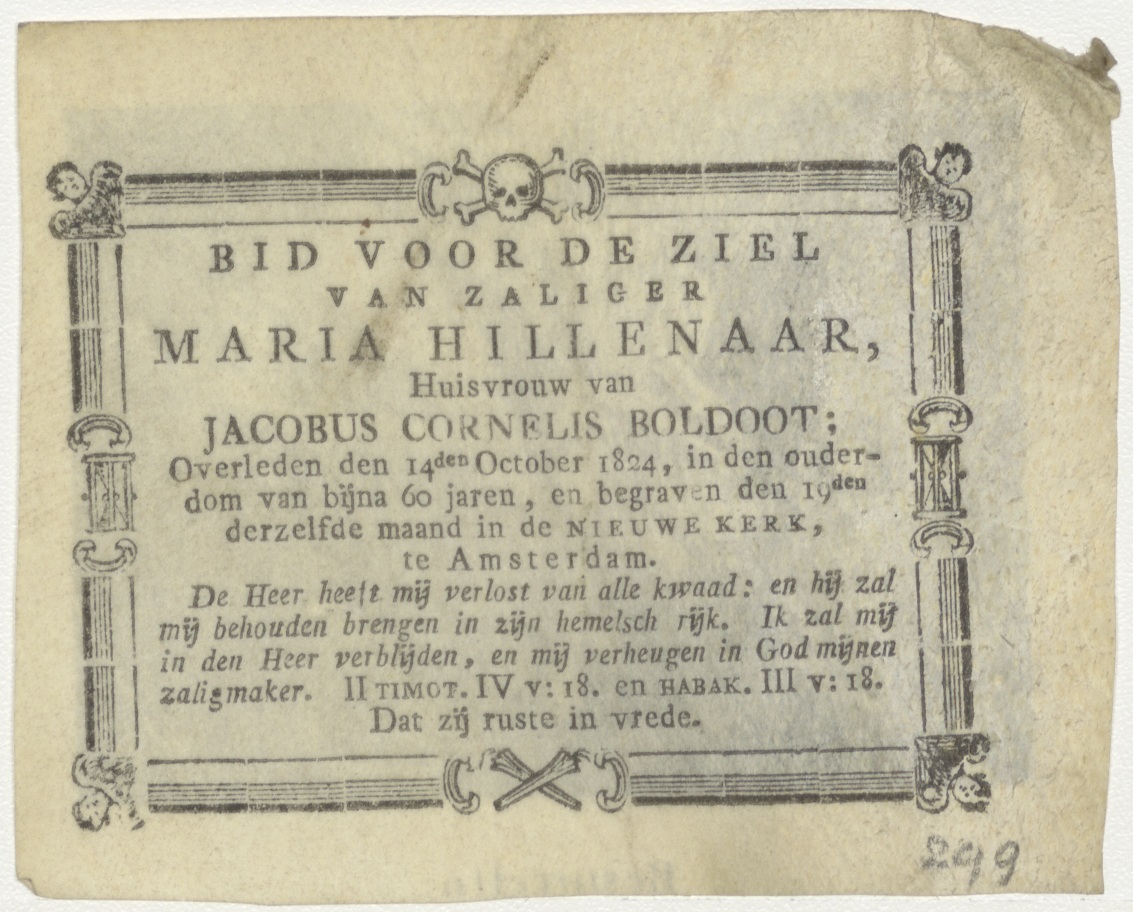 BID VOOR DE ZIEL
VAN ZALIGER
MARIA HILLENAAR,
Huisvrouw van
JACOBUS CORNELIS BOLDOOT;
Overleden den 14den October 1824, in den ouder-
dom van bijna 60 jaren, en begraven den 19den
derzelfde maand in de NIEUWE KERK,
te Amsterdam.
De Heer heeft mij verlost van alle kwaad: en hij zal
mij behouden brengen in zijn hemelsch rijk. Ik zal mij
in den Heer verblijden, en mij verheugen in God mijnen
zaligmaker. II TIMOT. IV v: 18. en HABAK. III v: 18.
Dat zij ruste in vrede.
299